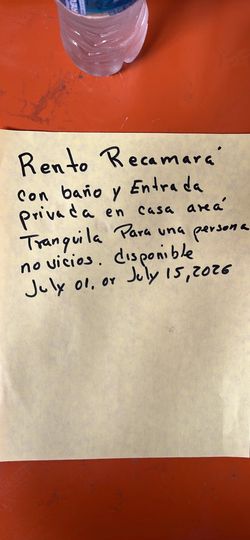 Rento Recamará
con baño y Entrada
privada en casa areá
Tranquila Para una persona
no vicios. disponible
July 01. or July 15, 2026